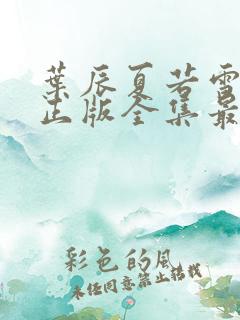 葉辰夏若雪
出版全集最
彩色的風
未经同意禁止搭载